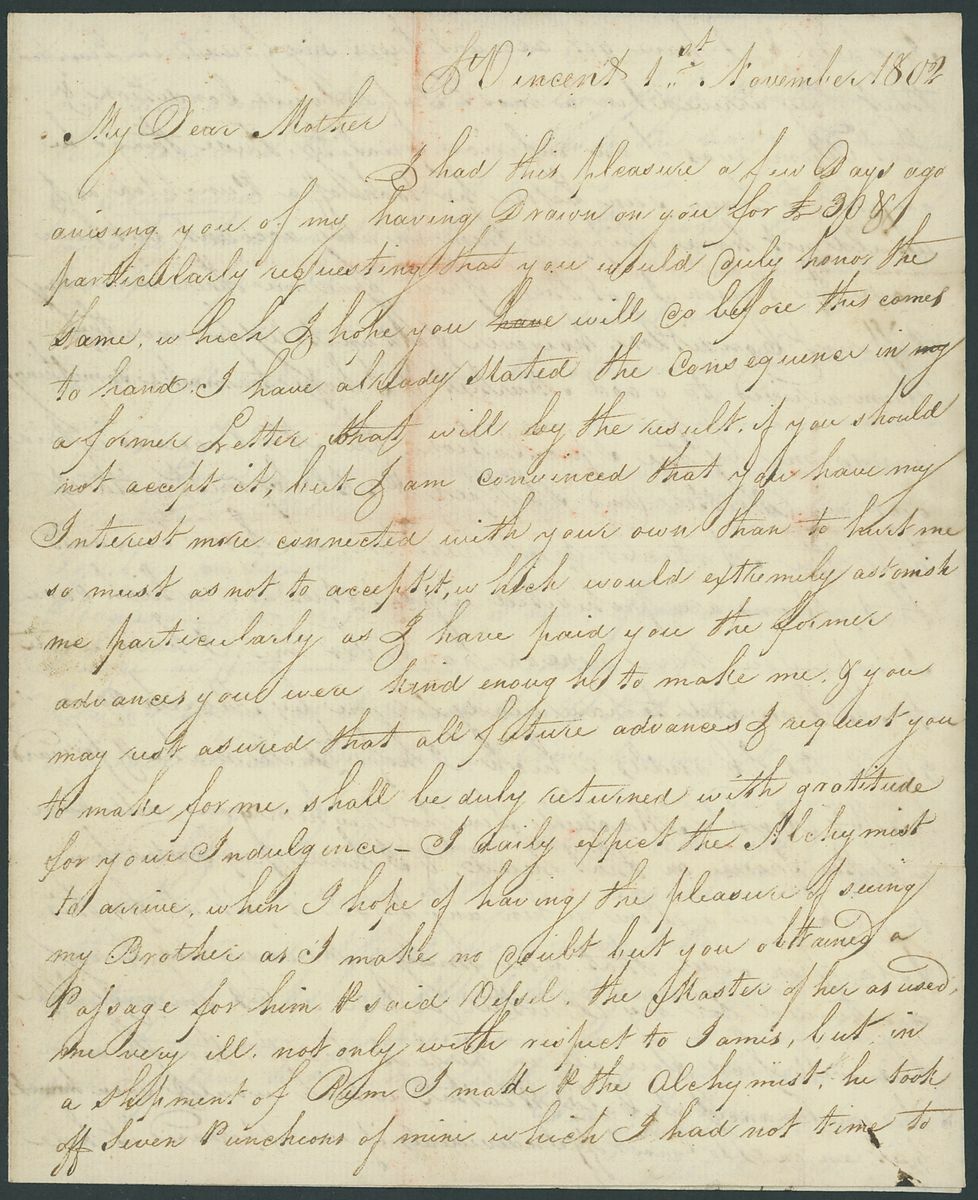 St Vincent 1st November 1802
My Dear Mother
I had this pleasure a few Days ago
avising you of my having Drawn on you for £308
particularly requesting that you would duly honor the
same, which I hope you have will do before this comes
to hand. I have already stated the Consequence in my
a former Letter that will by the result, if you should
not accept it, but I am convinced that you have my
Interest more connected with your own than to hurt me
so must as not to accept it, which would extremely astonish
me particularly as I have paid you the former
advances you were kind enough to make me, & you
may rest asured that all future advances I request you
to make for me, shall be duly returned with gratitude
for your Indulgence – I daily expect the Alchymist
to arrive, when I hope of having the pleasure of seeing
my Brother as I make no doubt but you obtained a
Passage for him P said Vessel, the Master of her as used
me very ill, not only with respect to James, but in
a shipment of Rum I made P the Alchymist, he took
off Seven Puncheons of mine which I had not time to